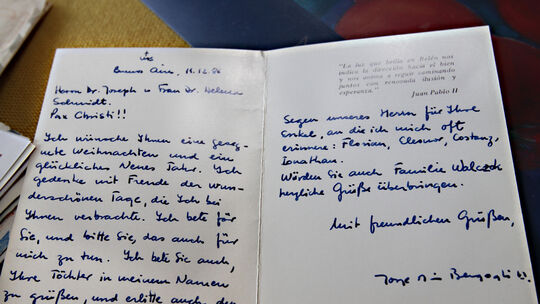 Buenos Aires, 16.12.86
Herrn Dr. Joseph u Frau Dr. Helena
Schmidt.
Pax Christi!!
Ich wünsche Ihnen eine geseg-
nete Weihnachten und ein
glückliches Neues Jahr. Ich
gedenke mit Freude der wun-
derschönen Tage, die ich bei
Ihnen verbrachte. Ich bete für
Sie, und bitte Sie, das auch für
mich zu tun. Ich bete Sie auch,
Ihre Töchter in meinem Namen
zu grüßen, und erbitte auch den
"Es luz que brilla en Belén nos
indica la dirección hacia el bien
y nos anima a seguir caminando
juntos con renovada ilusión y
esperanza."
Juan Pablo II
Segen unseres Herrn für Ihre
Enkel, an die ich mich oft
erinnere: Florian, Clemens, Costanz,
Jonathan.
Würden Sie auch Familie Walczok
herzliche Grüße überbringen.
Mit freundlichen Grüßen,
Jorge M. Bergoglio sj